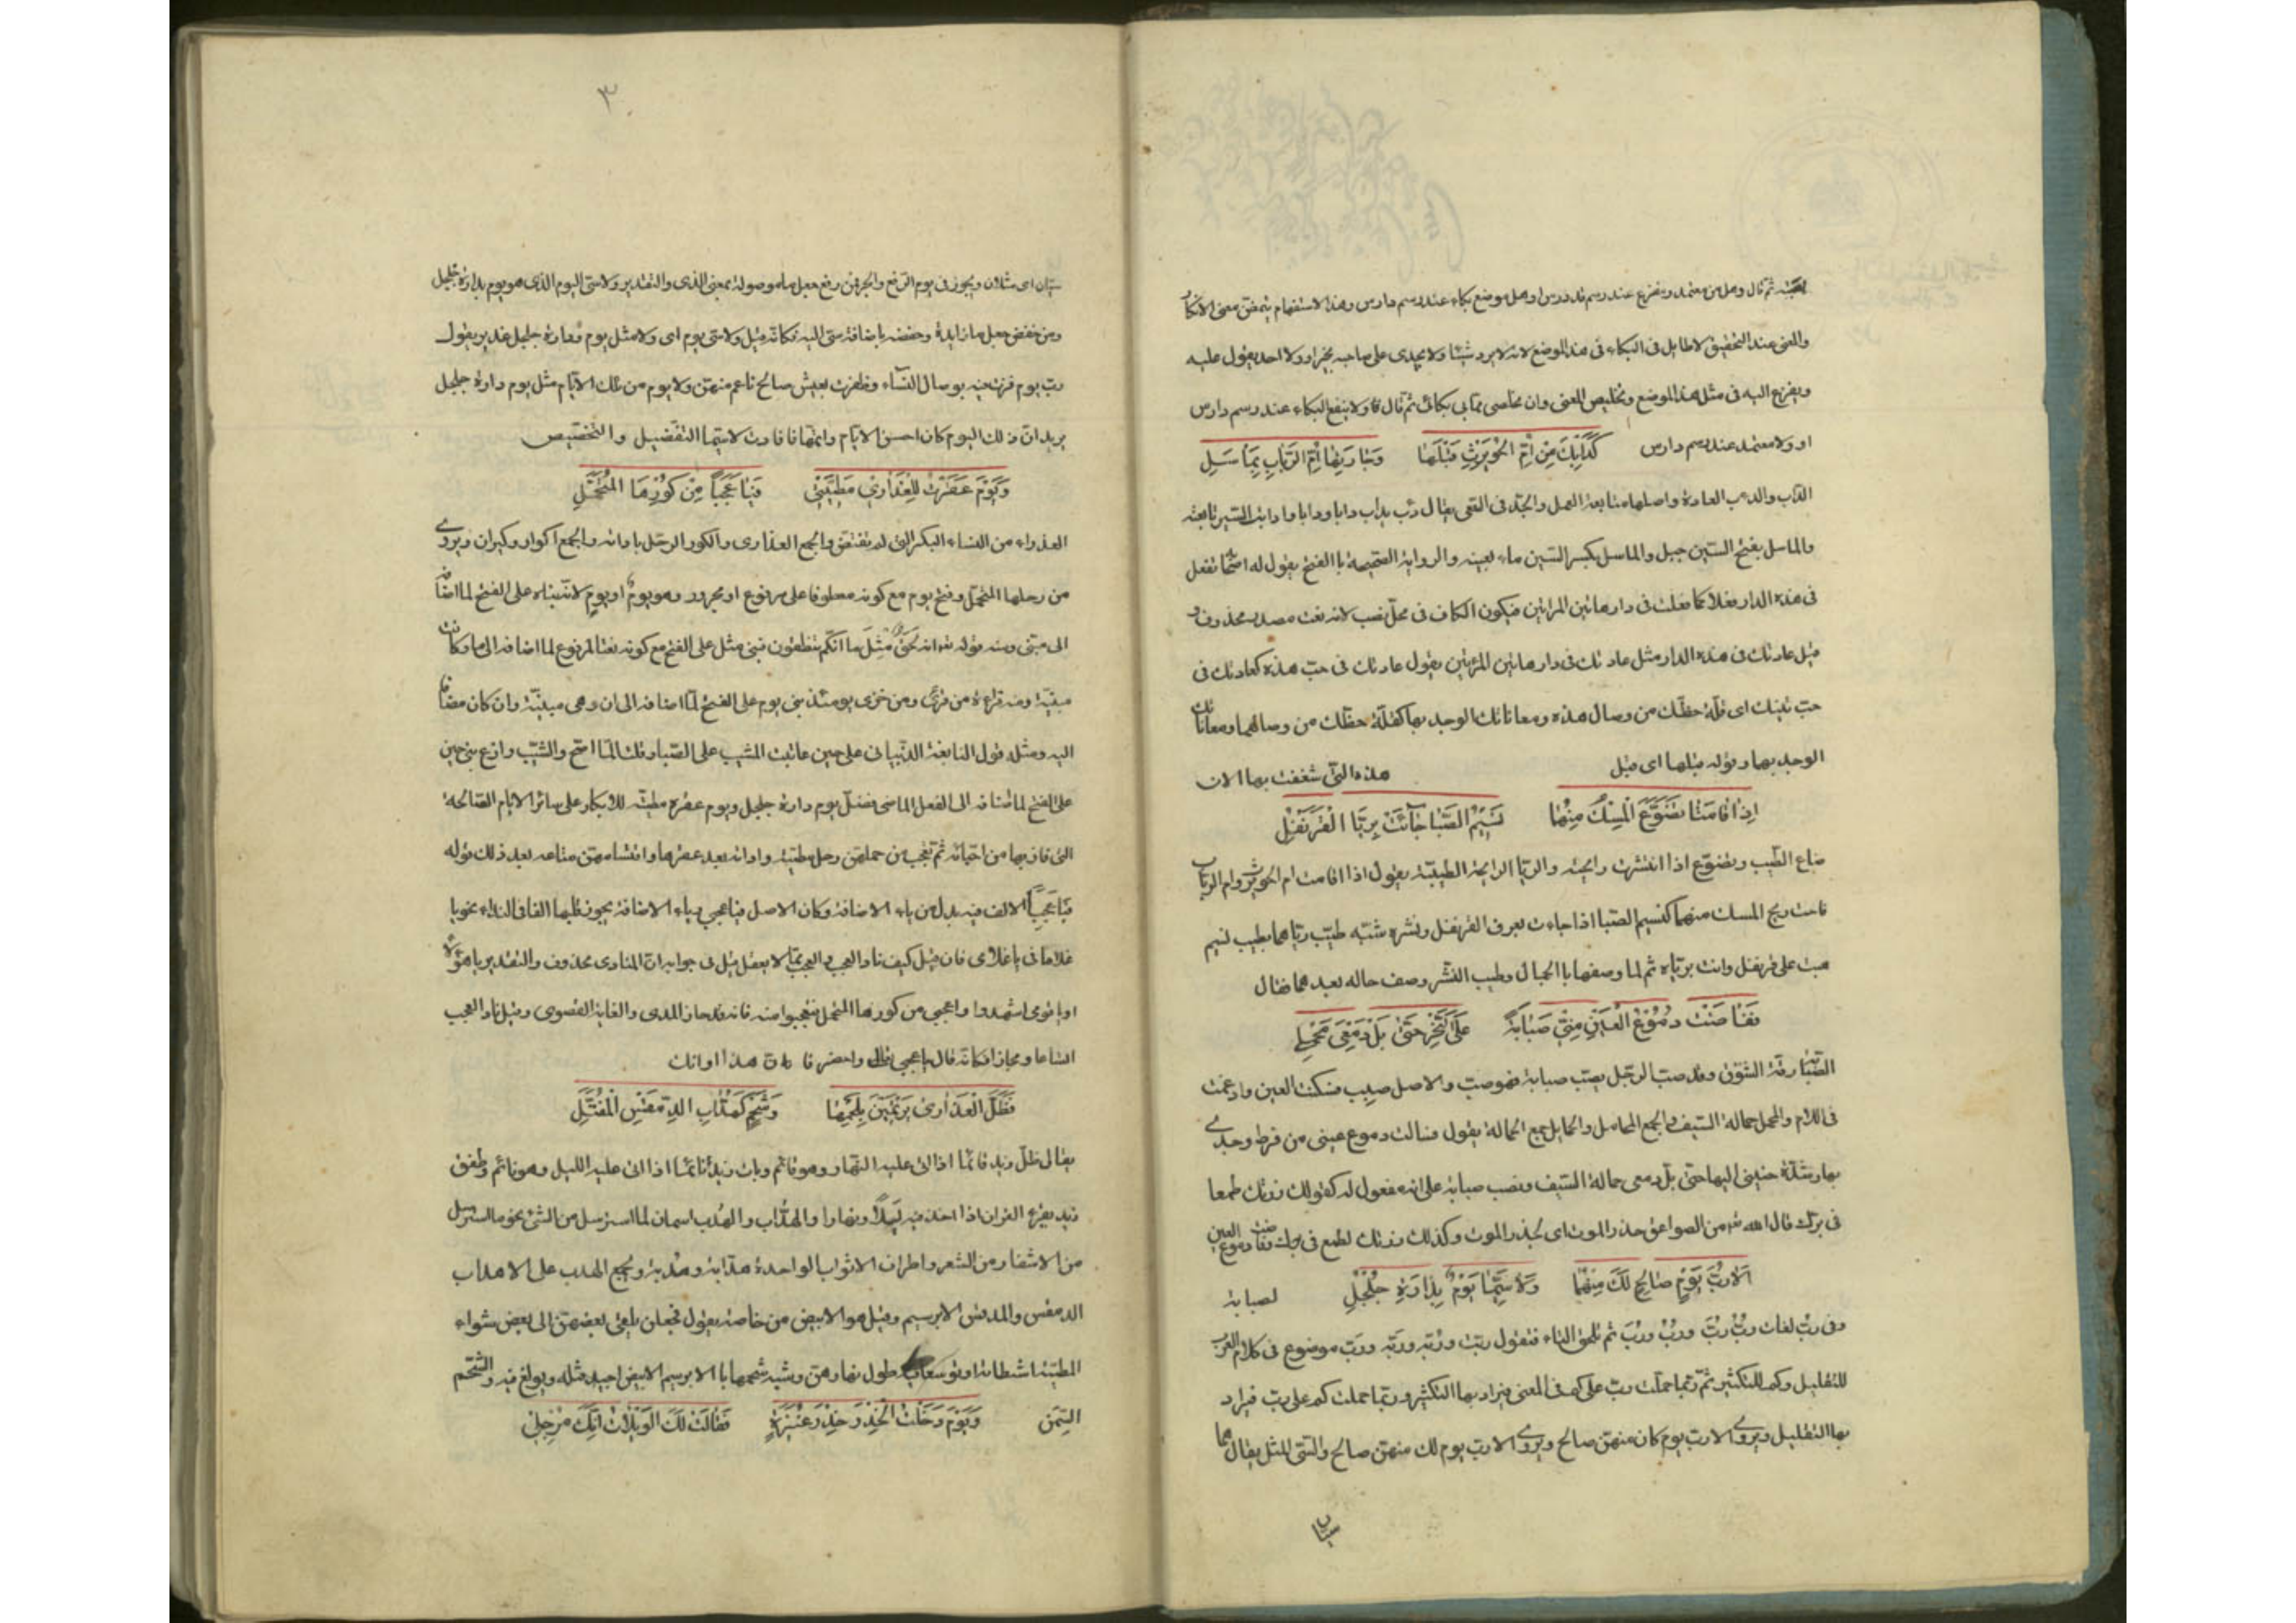 ثم قال وهل من معتمد ومفزع عند رسم قد درس او هل موضع بكاء عند رسم دارس وهذا الاستفهام يتضمن معنى الانكار
والمعنى عند التحقيق لا طايل فى البكاء فى هذا الموضع لانه لا يرد شيئا ولا يجدى على صاحبه بخير او ولا احد يعول عليه
ويفزع اليه فى مثل هذا الموضع وتخليص المعنى وان مخلصى مما بى بكائى ثم قال ولا ينفع البكاء عند رسم دارس
او ولا معتمد عند رسم دارس كَدَأبِكَ مِنْ اُمِّ الحُوَيْرِثِ قَبْلَهَا وَجَارَتِهَا اُمِّ الرَّبَابِ بِمَأسَلِ
الدأب والدءب العادة واصلها متابعة العمل والجدّ فى السعى يقال دئب يداب دابا ودابا وادابت السير تابعته
والماسل بفتح السّين جبل والماسل بكسر السّين ماء بعينه والرواية الصحيحة با الفتح يقول له انما تفعل
فى هذه الدار فعلا كما فعلت فى دار هاتين المراتين فيكون الكاف فى محلّ نصب لانه نعت مصدر محذوف و
قيل عادتك فى هذه الدار مثل عادتك فى دار هاتين المرئتين يقول عادتك فى حبّ هذه كعادتك فى
حبّ تينك اى قلّة حظّك من وصال هذه ومعاناتك الوجد بها كقلّة حظّك من وصالهما ومعاناتك
الوجد بهما وقوله قبلها اى قبل هذه التى شغفت بها الان
اِذَا قَامَتَا تَضَوَّعَ الْمِسْكُ مِنْهُمَا نَسِيْمَ الصَّبَا جَآئَتْ بِرَيَّا الْقَرَنْفُلِ
ضاع الطّيب وتضوّع اذا انتشرت رايحته والريّا الرايحة الطيبّة يقول اذا قامت ام الحويرث وام الرباب
فاحت ريح المسك منهما كنسيم الصّبا اذا جاءت بعرف القرنفل ونشره شبّه طيب ريّاهما بطيب نسيم
هبت على قرنفل واتت بريّاه ثم لما وصفهما با الجمال وطيب النّشر وصف حاله بعدهما فقال
فَفَاضَتْ دُمُوْعُ الْعَيْنِ مِنِّى صَبَابَةً عَلَى النَّحْرِ حَتّٰى بَلَّ دَمْعِىَ مَحْمِلِى
الصّبابة رقّة الشوق وقد صبّ الرجل يصبّ صبابة فهو صبّ والاصل صبب فسكنت العين وادغمت
فى اللام والمحمل حمالة السّيف والجمع المحامل والحمايل جمع الحمالة يقول فسالت دموع عينى من فرط وجدى
بهما وشدّة حنينى اليهما حتى بلّ دمعى حمالة السّيف ونصب صبابة على انه مفعول له كقولك زرتك طمعا
فى برّك قال الله من الصواعق حذر الموت اى لحذر الموت وكذلك زرتك لطمع فى برك ففاضت دموع العين
اَلَا رُبَّ يَوْمٍ صَالِحٍ لَكَ مِنْهُمَا وَلَا سِيَّمَا يَوْمٌ بِدَارَةِ جُلْجُلِ لصبابة
وفى ربّ لغات ربُّ رُبَّ وربُ وربَ ثم تلحق التاء فتقول ربّت وربّه وربّه وربّ موضوع فى كلام العرب
للتقليل وكم للتكثير ثم ربّما حملت ربّ على كم فى المعنى فيراد بها التكثير وربّما حملت كم على ربّ فيراد
بها التقليل ويروى الا ربّ يوم كان منهن صالح ويروى الا ربّ يوم لك منهنّ صالح والسّى المثل يقال هما
سيان
٣
سيّان اى مثلان ويجوز فى يوم الرّفع والجرّ فمن رفع جعل ما موصولة بمعنى الذى والتقدير ولا سىّ اليوم الذى هو يوم بدارة جلجل
ومن خفض جعل ما زايدة وخفضه باضافة سىّ اليه فكانّه قيل ولا سىّ يوم اى ولا مثل يوم ودارة جلجل غدير يقول
ربّ يوم فزت فيه بوصال النّسآء وظفرت بعيش صالح ناعم منهنّ ولا يوم من تلك الايّام مثل يوم دارة جلجل
يريد انّ ذلك اليوم كان احسن الايّام واتمّها فافادت لا سيّما التفضيل والتخصيص
وَيَوْمَ عَقَرْتُ لِلْعَذَارٰى مَطِيَّتِىْ فَيَا عَجَبًا مِنْ كُوْرِهَا الْمُتَحَمَّلِ
العذراء من النساء البكر التى لم يفتض والجمع العذارى والكور الرحل باداته والجمع اكوار وكيران ويروى
من رحلها المتحمّل وفتح يوم مع كونه معطوفا على مرفوع او مجرور وهو يومٌ او يومٍ لانه بناه على الفتح لما اضافه
الى مبنى ومنه قوله انه لحقّ مثلَ ما انّكم تنطقون فبنى مثل على الفتح مع كونه نعتا لمرفوع لما اضافه الى ما وكانت
مبنيّة ومنه قراءة من قرئ ومن خزى يومئذ بنى يوم على الفتح لمّا اضافه الى ان وهى مبنيّة وان كان مضافا
اليه ومثله قول النابغة الذّبيانى على حين عاتبت المشيب على الصّبا وقلت المّا اصح والشّيب وازع بنى حين
على الفتح لما اضافه الى الفعل الماضى فضّل يوم دارة جلجل ويوم عقره مطيّته للابكار على سائر الايام الصّالحة
التى فاز بها من احبّائه ثم تعجب من حملهنّ رحل مطيّته واداته بعد عقرها واقتسامهنّ متاعه بعد ذلك قوله
فَيَا عَجَبًا الالف فيه بدل من ياء الاضافة وكان الاصل فيا عجبى وياء الاضافة يجوز قلبها الفا فى النداء نحو يا
غلاما فى يا غلامى فان قيل كيف نادا العجب والعجب ممّا لا يعقل قيل فى جوابه انّ المنادى محذوف والتقدير يا هؤلاء
او يا قومى اشهدوا واعجبى من كورها المتحمّل فتعجبوا منه فانه قد جاز المدى والغاية القصوى وقيل نادا العجب
اتساعا ومجازا فكانّه قال يا عجبى تعال واحضر فان هذا اوانك
فَظَلَّ الْعَذَارٰى يَرْتَمِيْنَ بِلَحْمِهَا وَشَحْمٍ كَهُدَّابِ الدِّمَقْسِ الْمُفَتَّلِ
يقال ظلّ زيد قائما اذا اتى عليه النّهار وهو قائم وبات زيد نائمًا اذا اتى عليه الليل وهو نائم وطفق
زيد يقرء القران اذا اخذ فيه ليلاً ونهارا والهدّاب والهُدب اسمان لما استرسل من الشئ نحو ما استرسل
من الاشفار من الشعر واطراف الاثواب الواحدة هدّابة وهُدبة ويجمع الهدب على الاهداب
الدمقس والمدقس الابريسم وقيل هو الابيض من خاصة يقول فجعلن يلقى بعضهنّ الى بعض شواء
المطيّة استطابة او توسعا طول نهارهنّ وشبّه شحمها با الابريسم الابيض اجيد فتله وبولغ فيه والشّحم
السّمن وَيَوْمَ دَخَلْتُ الْخِدْرَ خِدْرَ عُنَيْزَةٍ فَقَالَتْ لَكَ الْوَيْلَاتُ اِنَّكَ مُرْجِلِىْ